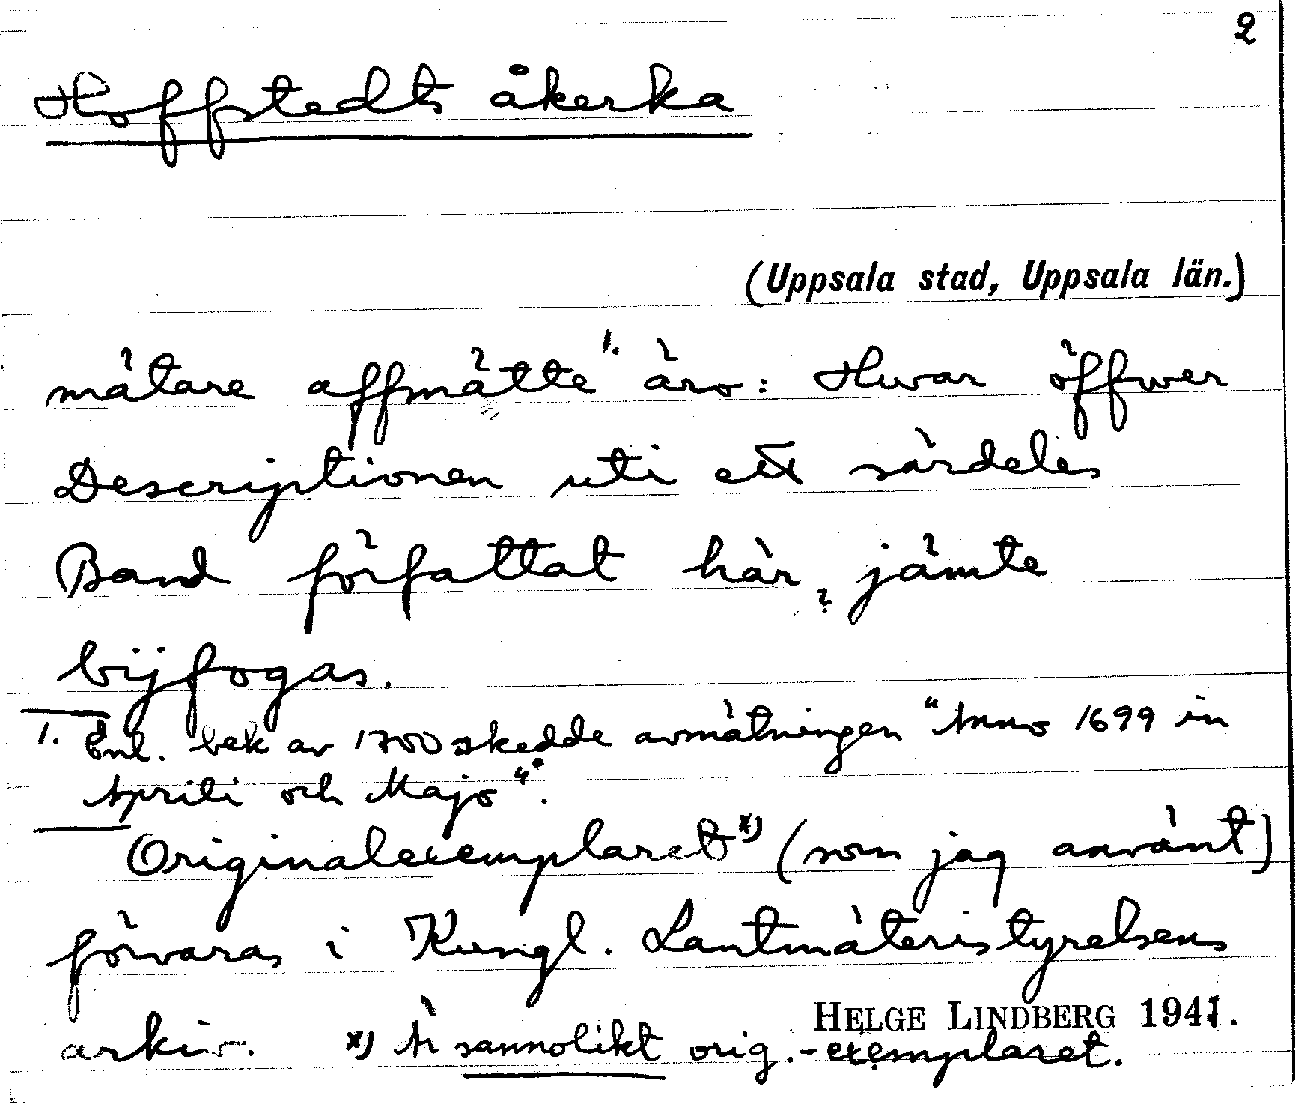 2
Hoffstedts åkerka
(Uppsala stad, Uppsala län.)
mätare affmätte 1. äro: Hwar öffwer
Descriptionen uti ett särdeles
Band författat här jämte
bijfogas.
1. Enl. bek av 1700 skedde avmätningen "Anno 1699 in
Aprili och Majo".
Originalexemplaret x) (som jag använt)
förvaras i Kungl. Lantmäteristyrelsens
HELGE LINDBERG 1941.
arkiv. x) Är sannolikt orig.-exemplaret.